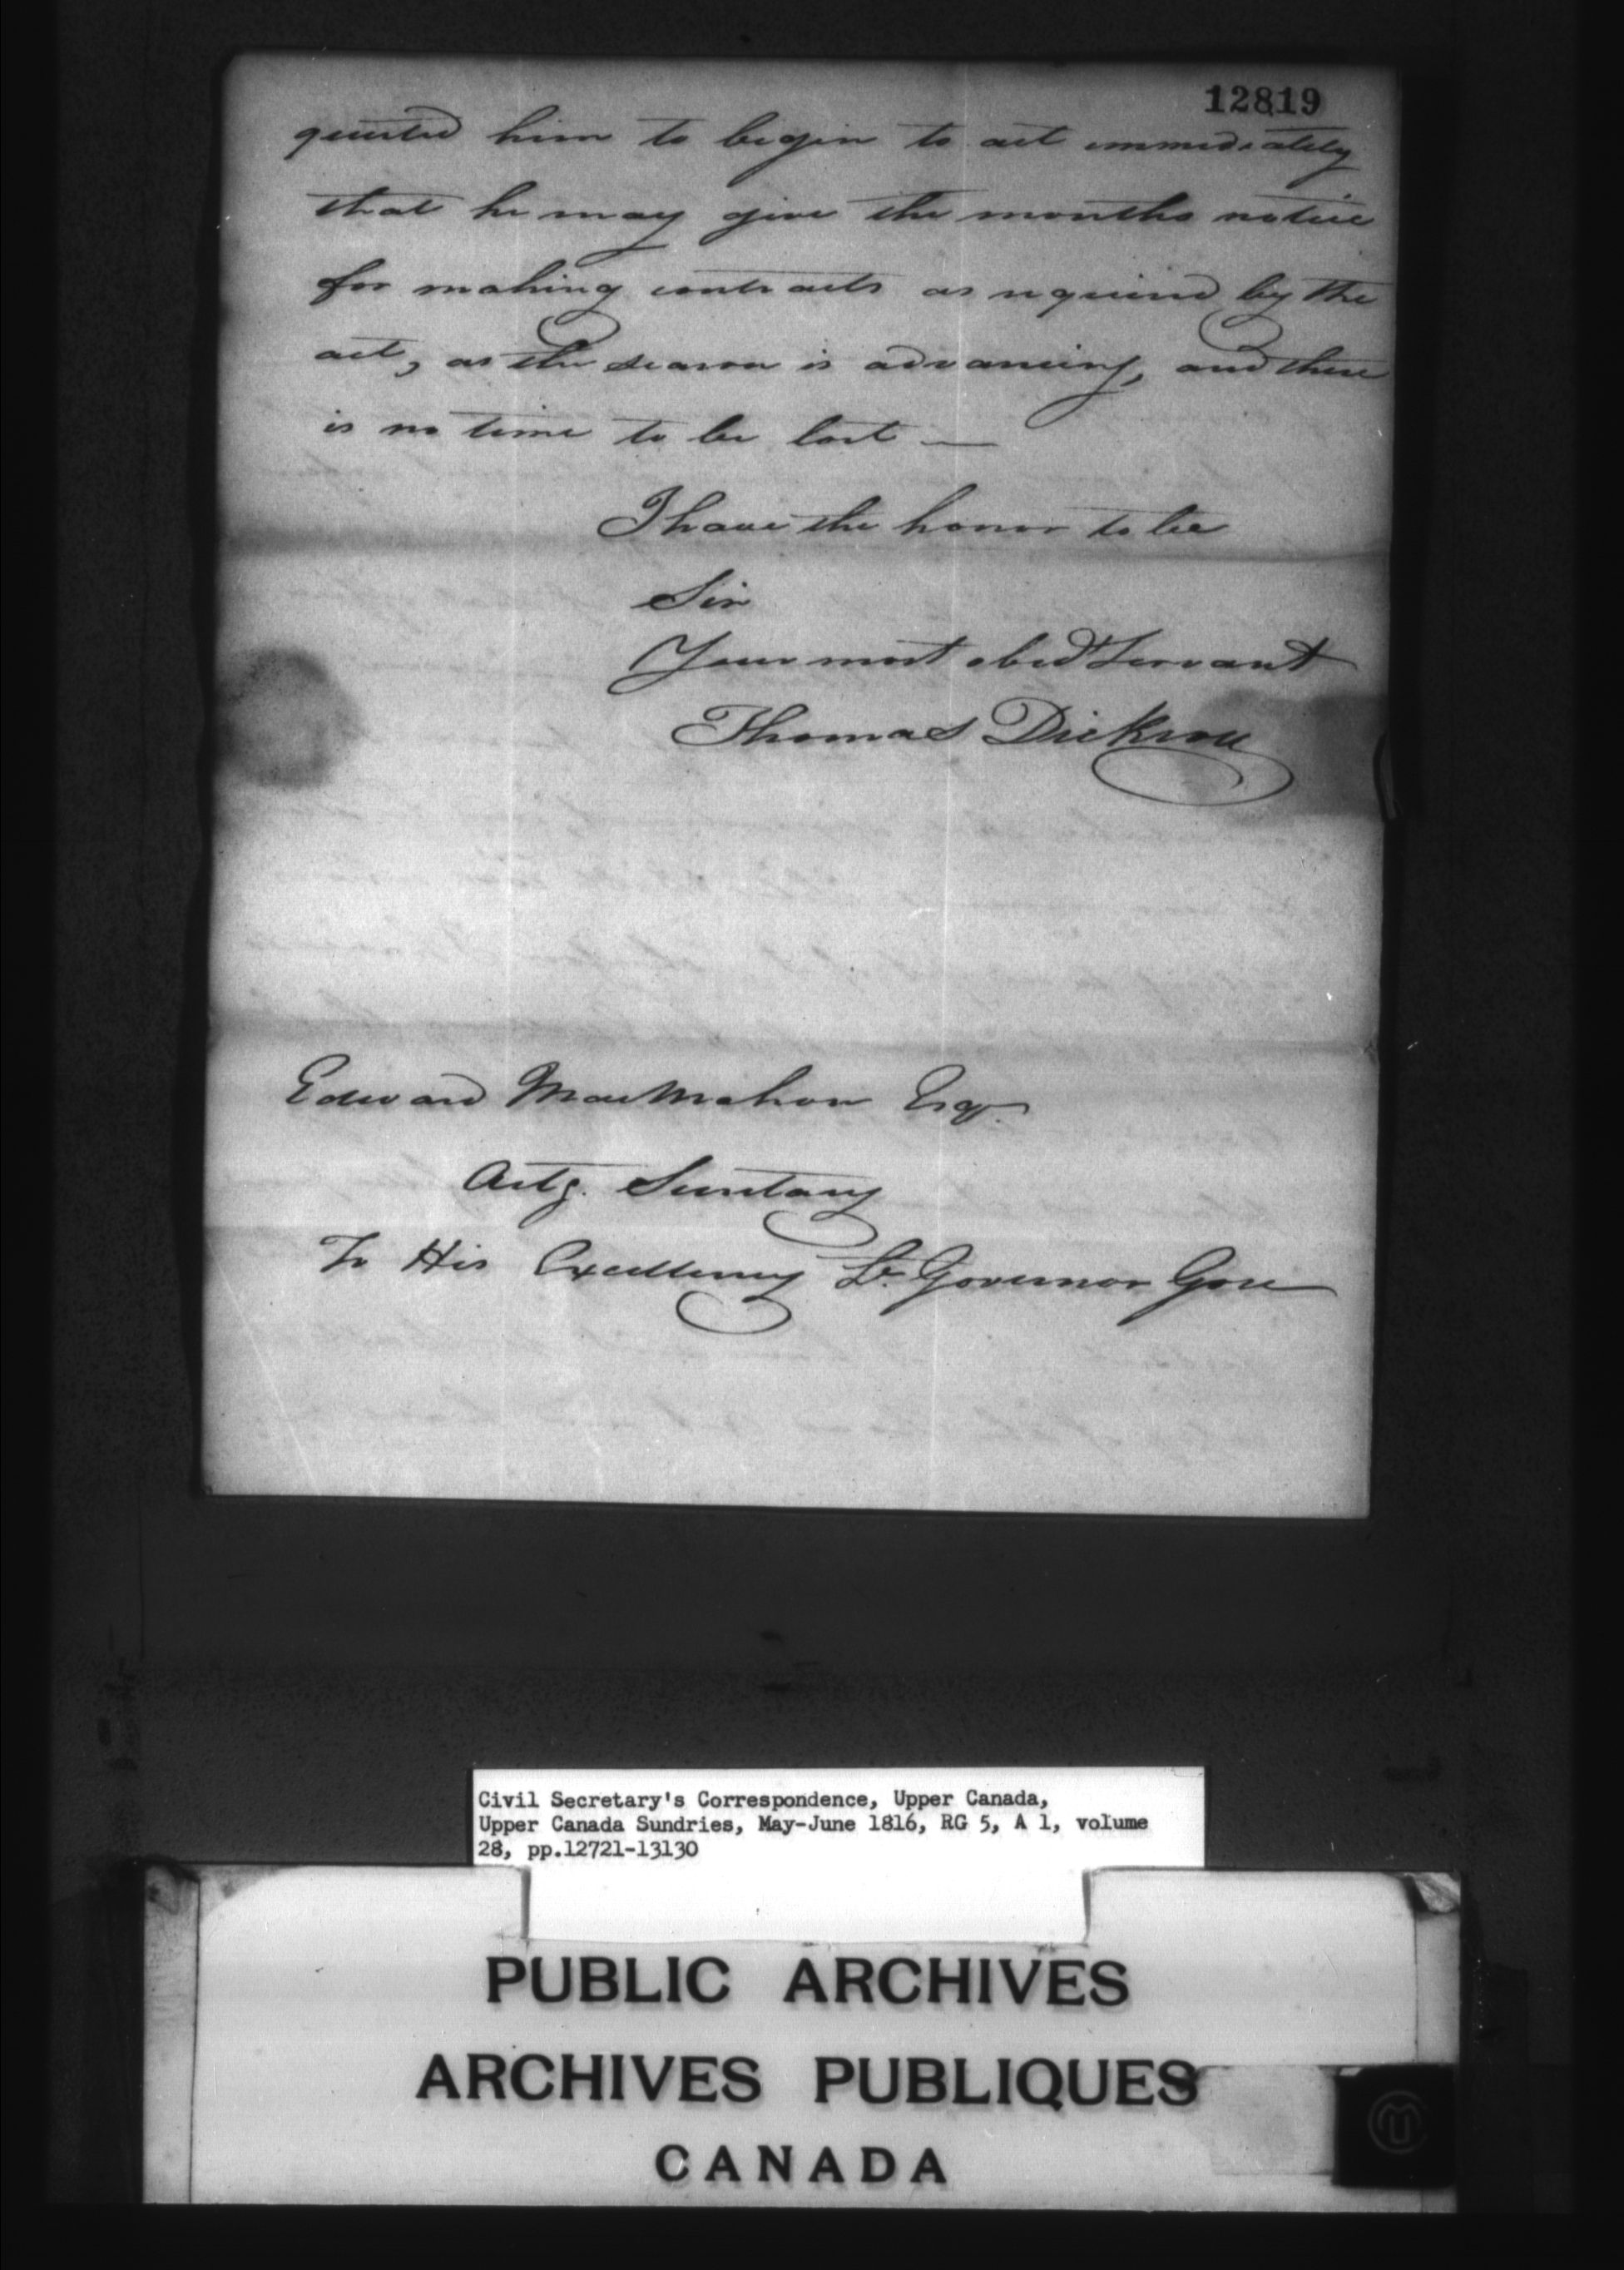 12819
quested him to begin to act immediately
that he may give the months notice
for making contracts as required by the
act, as the season is advancing, and there
is no time to be lost —
I have the honor to be
Sir
Your most obedt Servant
Thomas Dickson
Edward MacMahon Esqr.
Actg. Secretary
To His Excellency Lt. Governor Gore
Civil Secretary's Correspondence, Upper Canada,
Upper Canada Sundries, May-June 1816, RG 5, A 1, volume
28, pp.12721-13130
PUBLIC ARCHIVES
ARCHIVES PUBLIQUES
CANADA